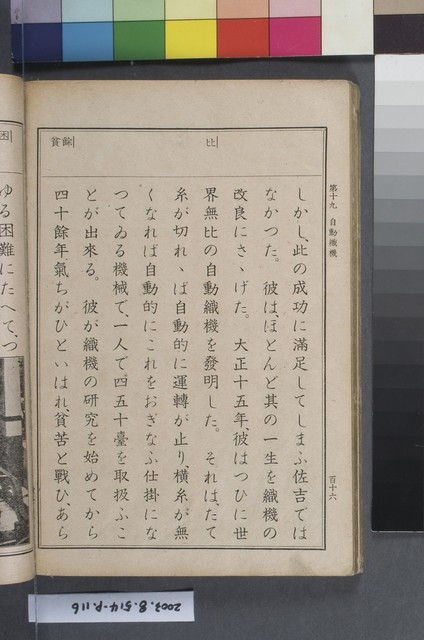 第十九 自動織機
百十六
比
餘
貧
しかし、此の成功に滿足してしまふ佐吉では
なかつた。彼は、ほとんど其の一生を織機の
改良にさゝげた。大正十五年、彼はつひに世
界無比の自動織機を發明した。それは、たて
糸が切れゝば自動的に運轉が止り、橫糸が無
くなれば自動的にこれをおぎなふ仕掛にな
つてゐる機械で、一人で四五十臺を取扱ふこ
とが出來る。彼が織機の硏究を始めてから
四十餘年、氣ちがひといはれ、貧苦と戰ひ、あら
困
ゆる困難にたへて、つ
2003.8.514-P.116